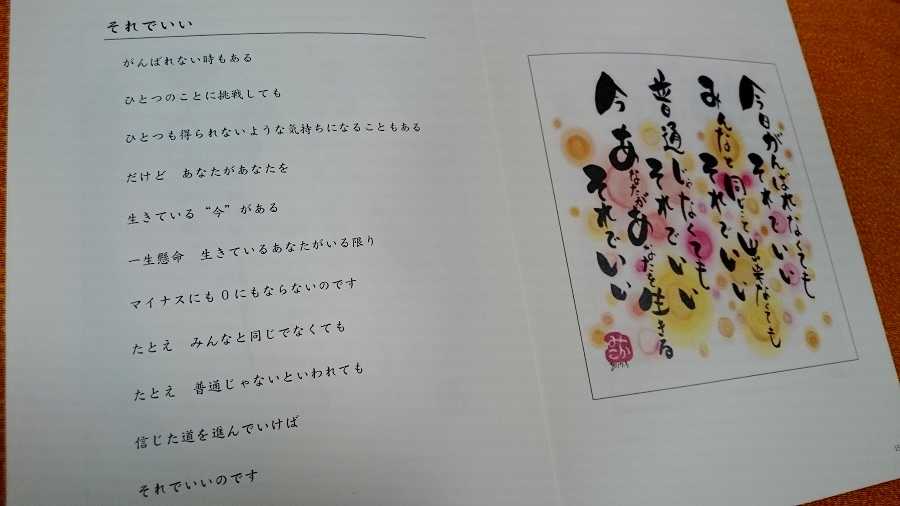 それでいい
がんばれない時もある
ひとつのことに挑戦しても
ひとつも得られないような気持ちになることもある
だけど　あなたがあなたを
生きている“今”がある
一生懸命　生きているあなたがいる限り
マイナスにも0にもならないのです
たとえ　みんなと同じでなくても
たとえ　普通じゃないといわれても
信じた道を進んでいけば
それでいいのです
今日がんばれなくても
それでいい
みんなと同じこと出来なくても
それでいい
普通じゃなくても
それでいい
今あなたがあなたを生きる
それでいい